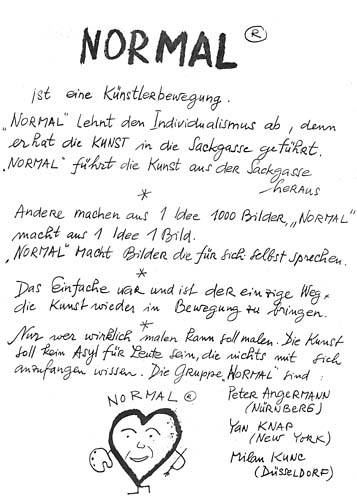 NORMAL ®
ist eine Künstlerbewegung.
„NORMAL" lehnt den Individualismus ab, denn
er hat die KUNST in die Sackgasse geführt.
„NORMAL" führt die Kunst aus der Sackgasse
heraus
*
Andere machen aus 1 Idee 1000 Bilder, „NORMAL"
macht aus 1 Idee 1 Bild.
„NORMAL" Macht Bilder die für sich selbst sprechen.
*
Das Einfache war und ist der einzige Weg,
die Kunst wieder in Bewegung zu bringen.
*
Nur wer wirklich malen kann soll malen. Die Kunst
soll kein Asyl für Leute sein, die nichts mit sich
anzufangen wissen. Die Gruppe „NORMAL" sind:
Peter Angermann
(NÜRNBERG)
Yan KNAP
(NEW YORK)
Milan KUNC
(DÜSSELDORF)
NORMAL ®